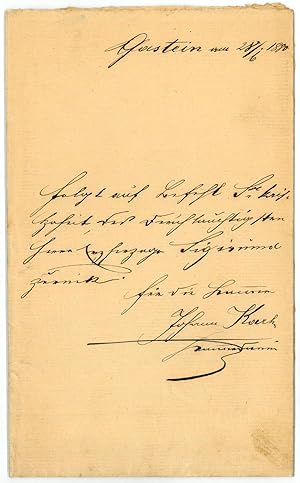 Gastein am 28/6 1880
folgt auf Befehl Sr. kais.
Hoheit des Durchlauchtigsten
Herrn Erzherzogs Sigismund
zurück.
für die Kammer
Johann